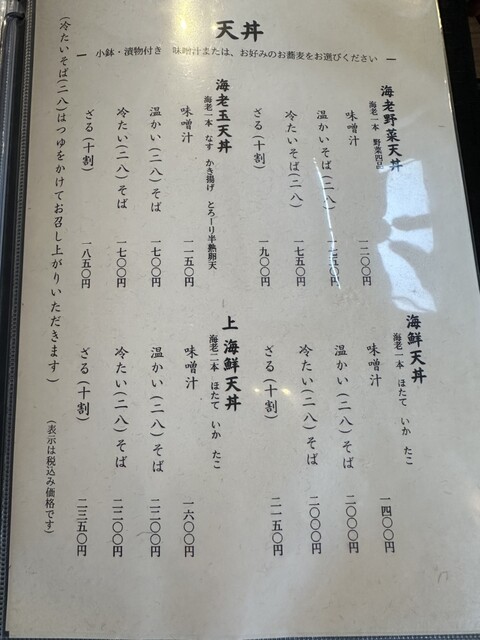 天丼
小鉢・漬物付き　味噌汁または、お好みのお蕎麦をお選びください
海老野菜天丼
海老一本　野菜四品
味噌汁　一二〇〇円
温かい（二八）そば　一七五〇円
冷たいそば（二八）　一七五〇円
ざる（十割）　一九〇〇円
海老玉天丼
海老一本　なす　かき揚げ　とろーり半熟卵天
味噌汁　一一五〇円
温かい（二八）そば　一七〇〇円
冷たい（二八）そば　一七〇〇円
ざる（十割）　一八五〇円
海鮮天丼
海老一本　ほたて　いか　たこ
味噌汁　一四〇〇円
温かい（二八）そば　二〇〇〇円
冷たい（二八）そば　二〇〇〇円
ざる（十割）　二一五〇円
上　海鮮天丼
海老二本　ほたて　いか　たこ
味噌汁　一六〇〇円
温かい（二八）そば　二二〇〇円
冷たい（二八）そば　二二〇〇円
ざる（十割）　二三五〇円
（冷たいそば（二八）はつゆをかけてお召し上がりいただきます）
（表示は税込み価格です）